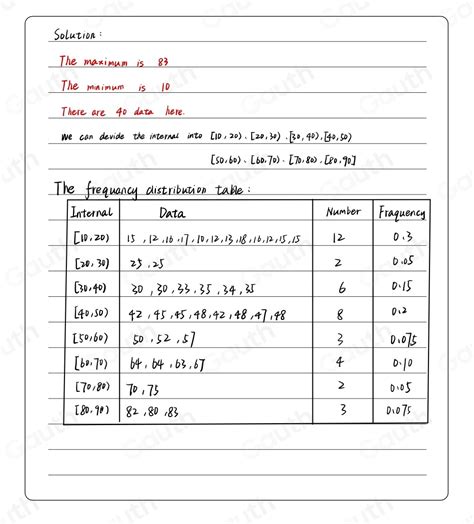 Solution :
The maximum is 83
The minimum is 10
There are 40 data here.
We can devide the internal into [10,20). [20,30). [30,40), [40,50)
[50,60). [60,70). [70,80). [80,90]
The frequancy distribution table :
Internal Data Number Fraquency
[10,20) 15 , 12 , 16 , 17 , 10 , 12 , 13 , 18 , 16 , 12 , 15 , 15 12 0.3
[20,30) 25 , 25 2 0.05
[30,40) 30 , 30 , 33 , 35 , 34 , 35 6 0.15
[40,50) 42 , 45 , 45 , 48 , 42 , 48 , 47 , 48 8 0.2
[50,60) 50 , 52 , 57 3 0.075
[60,70) 64 , 64 , 63 , 67 4 0.10
[70,80) 70 , 75 2 0.05
[80,90) 82 , 80 , 83 3 0.075